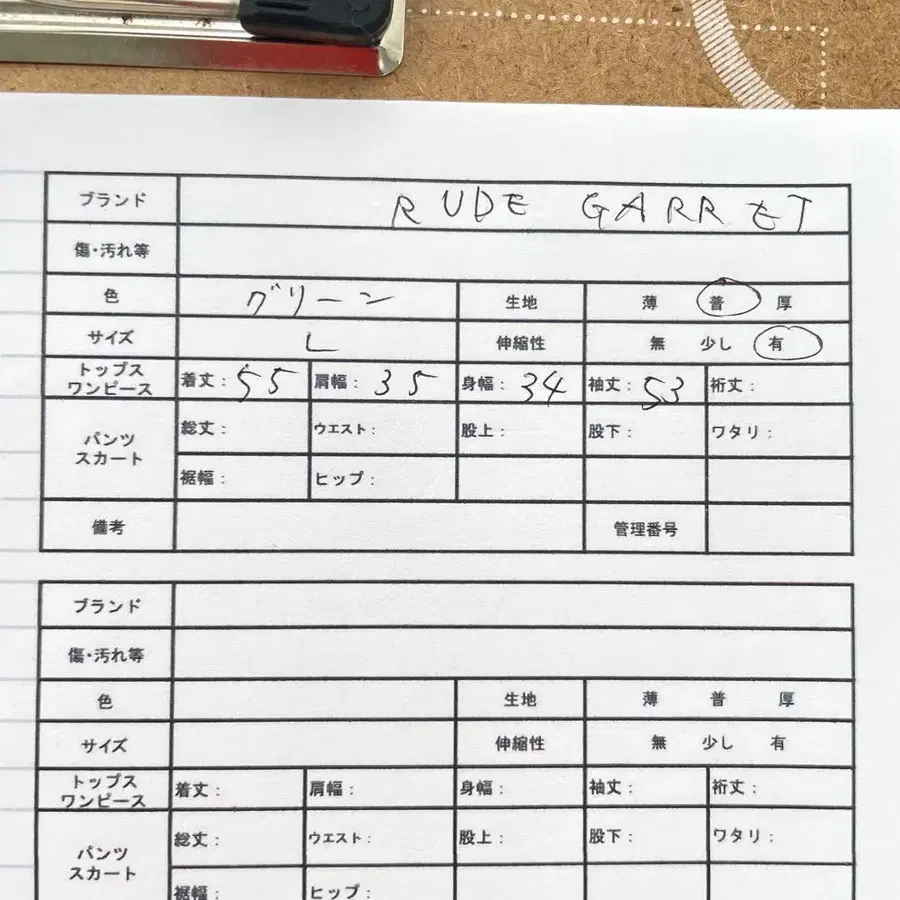 ブランド RUDE GARRET
傷・汚れ等
色 グリーン 生地 薄 普 厚
サイズ L 伸縮性 無 少し 有
トップス
ワンピース 着丈：55 肩幅：35 身幅：34 袖丈：53 裄丈：
総丈： ウエスト： 股上： 股下： ワタリ：
パンツ
スカート
裾幅： ヒップ：
備考 管理番号
ブランド
傷・汚れ等
色 生地 薄 普 厚
サイズ 伸縮性 無 少し 有
トップス
ワンピース 着丈： 肩幅： 身幅： 袖丈： 裄丈：
総丈： ウエスト： 股上： 股下： ワタリ：
パンツ
スカート
裾幅： ヒップ：